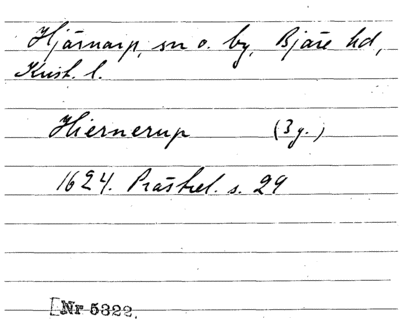 Hjärnarp, sn o. by, Bjäre hd,
Krist. l.
Hiernerup (3 g.)
1624. Präsrel. s. 29
[Nr 5322.